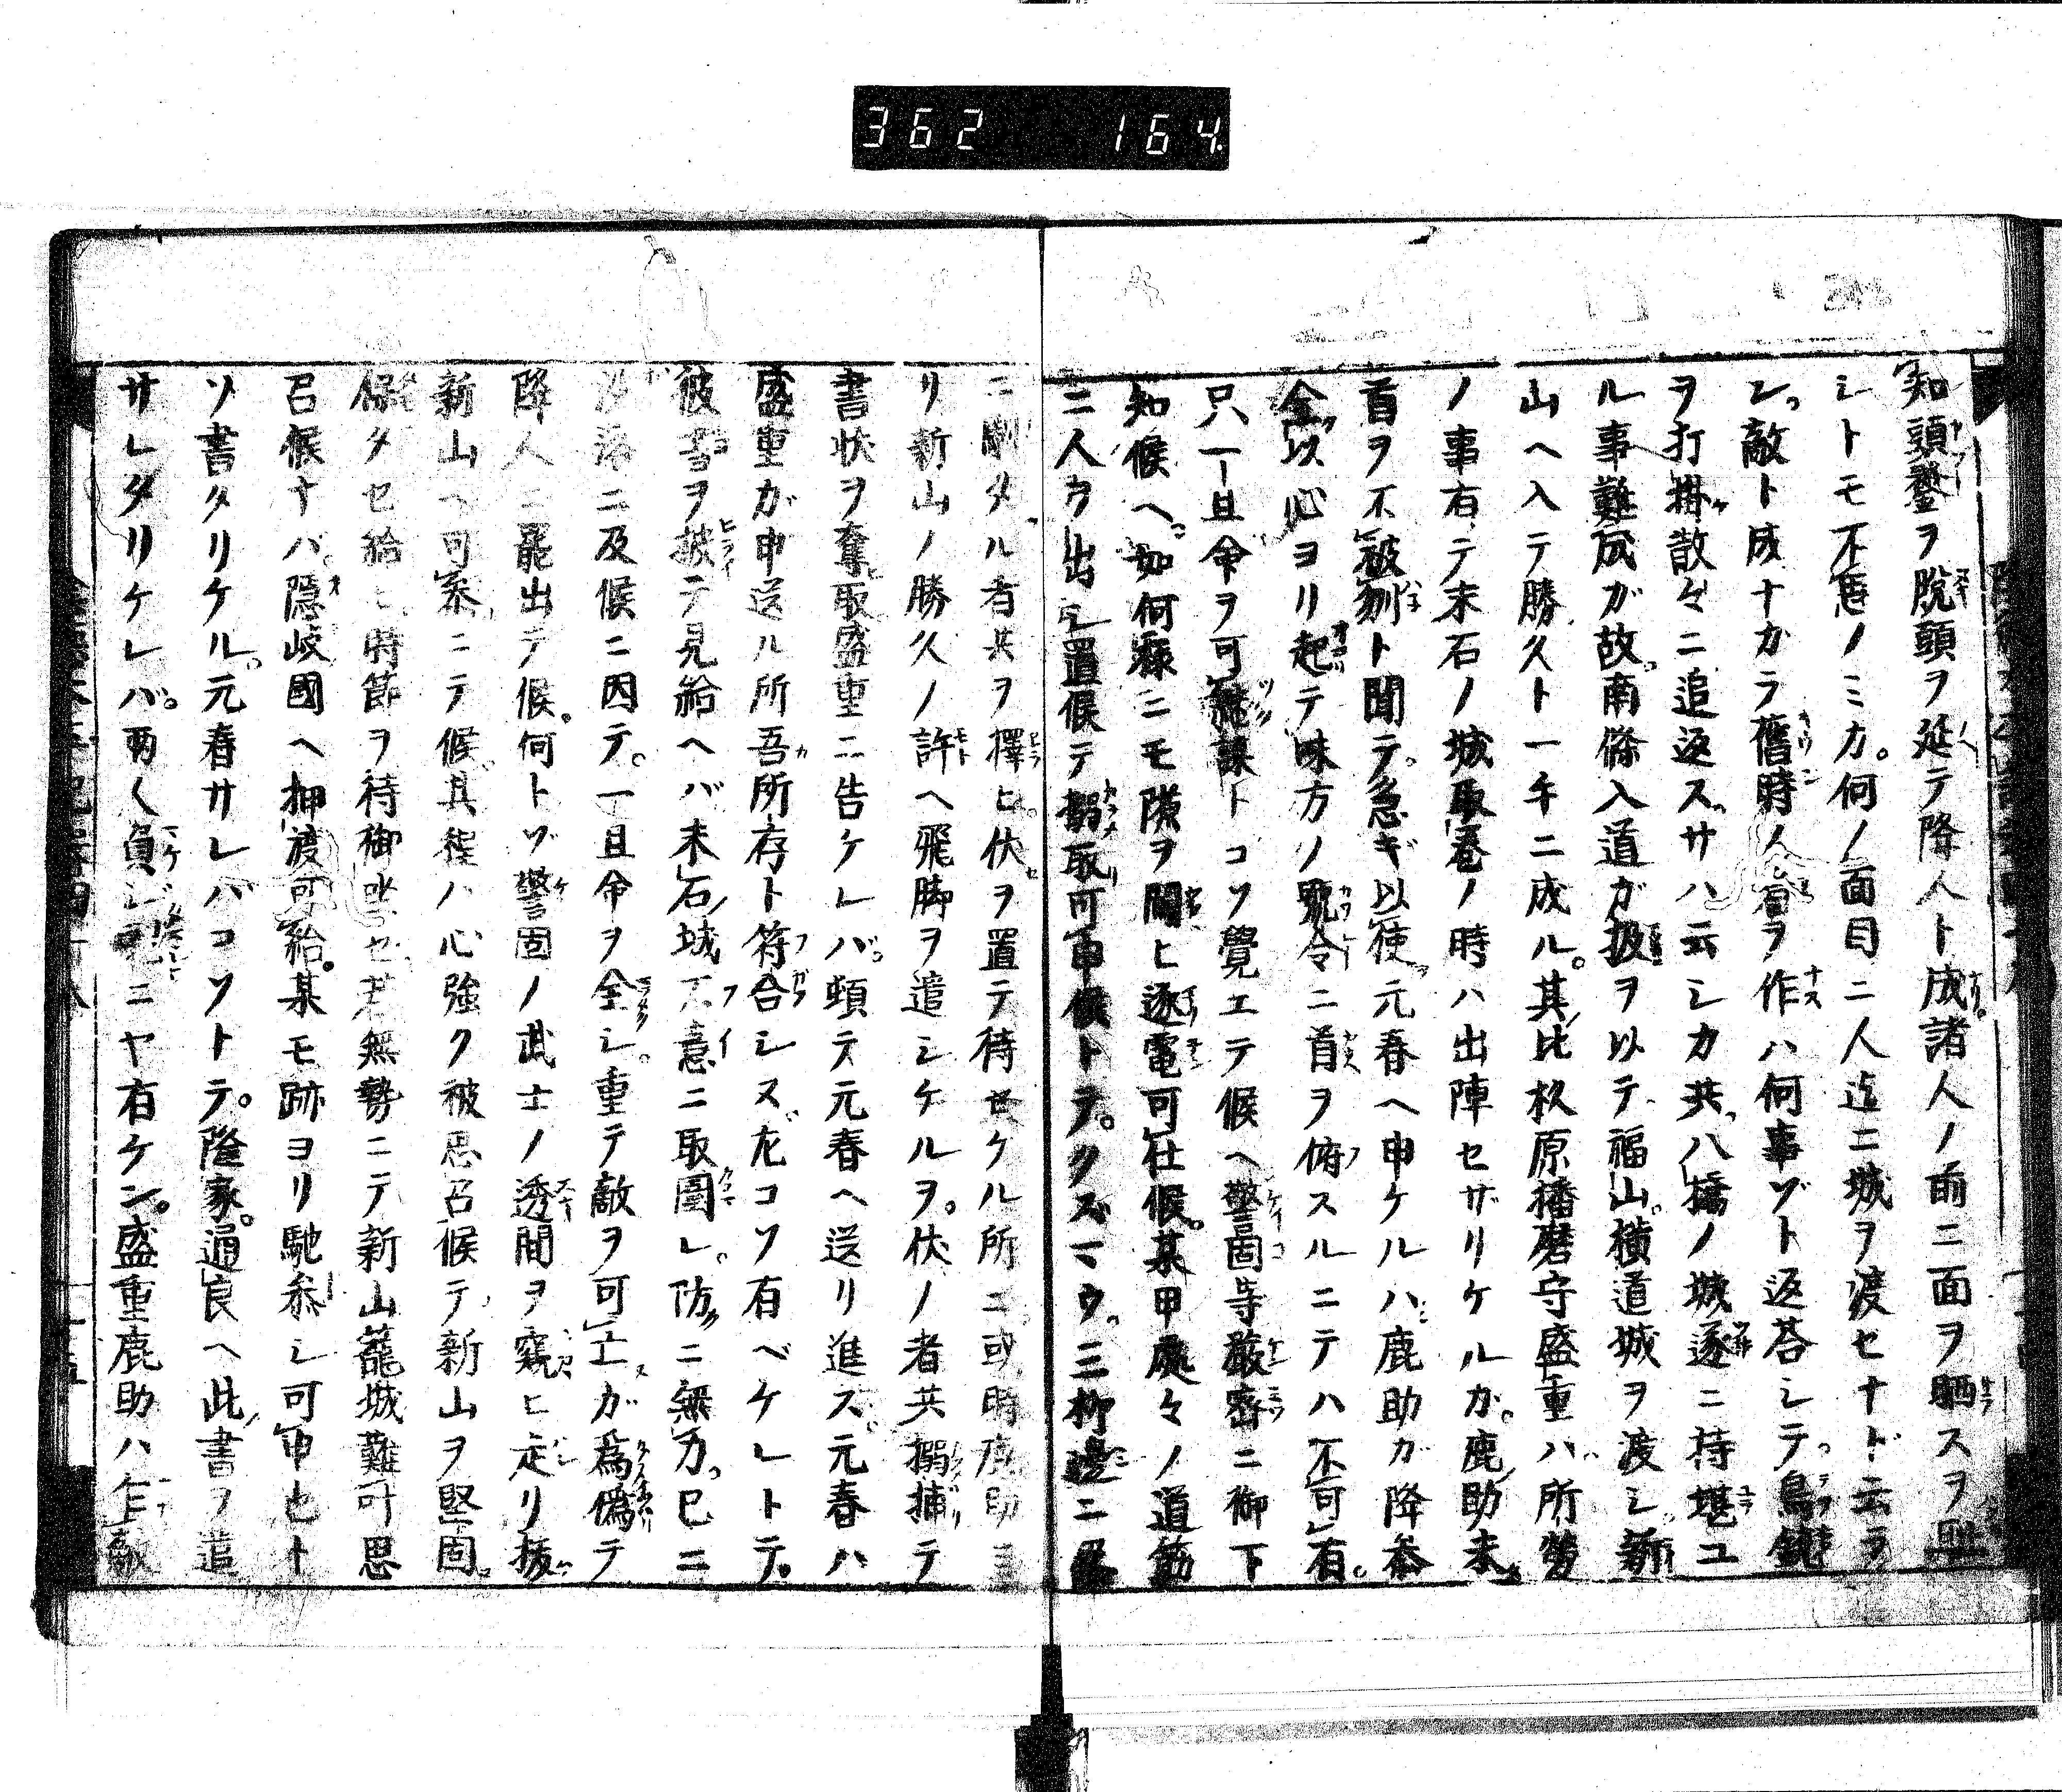 362 164
知頭鍪ヲ脱頭ヲ延テ降人ト成諸人ノ前ニ面ヲ晒スヲ
シトモ不思ノミカ何ノ面目ニ人迄ニ城ヲ渡セナド云ラ
シ敵ト成ナカラ時ノ ヲ作ハ何事ゾト返荅シテ鳥銃
ヲ打掛散々ニ追返スサハ云シカ共八橋ノ城遂ニ持堪ユ
ル事難成ガ故南條入道ガ扱ヲ以テ福山横道城ヲ渡シ新
山ヘ入テ勝久ト一手ニ成ル其比杦原播磨守盛重ハ所勞
ノ事有テ末石ノ城取巻ノ時ハ出陣セザリケルガ鹿助末
首ヲ不被刎ト聞テ急ギ以使元春ヘ申ケルハ鹿助ガ降参
全以心ヨリ起テ味方ノ號令ニ首ヲ俯スルニテハ不可有
只一旦命ヲ可繼謀トコソ覺エテ候ヘ警固等嚴密ニ御下
知候ヘ如何樣ニモ隙ヲ闚ヒ逐電可仕候某甲處々ノ道筋
ニ人ヲ出シ置候テ搦取可申候トテクズマウ三柳邊ニ
ニ タル者共ヲ擇ヒ伏ヲ置テ待セケル所ニ或時鹿助ヨ
リ新山ノ勝久ノ許ヘ飛脚ヲ遣シケルヲ伏ノ者共搦捕テ
書状ヲ奪取盛重ニ告ケレバ頓テ元春ヘ送リ進ス元春ハ
盛重ガ申送ル所吾所存ト符合シスルコソ有ベケレトテ
彼書ヲ披テ見給ヘバ末石城不意ニ取圍レ防ニ無力巳ニ
落ニ及候ニ因テ一旦命ヲ全シ重テ敵ヲ可亡ガ為偽テ
降人ニ罷出テ候何トゾ警固ノ武士ノ透間ヲ窺ヒ走リ抜
新山ヘ可参ニテ候其程ハ心強ク被思召候テ新山ヲ堅固
保タセ給ヒ時節ヲ待御坐セ若無勢ニテ新山籠城難叶思
召候ナバ隠岐國ヘ押渡可給某モ跡ヨリ馳参シ可申也ト
ソ書タリケル元春サレバコソトテ隆家通良ヘ此書ヲ遣
サレタリケレバ兩〱負シ ニヤ有ケン盛重鹿助ハ乍敵